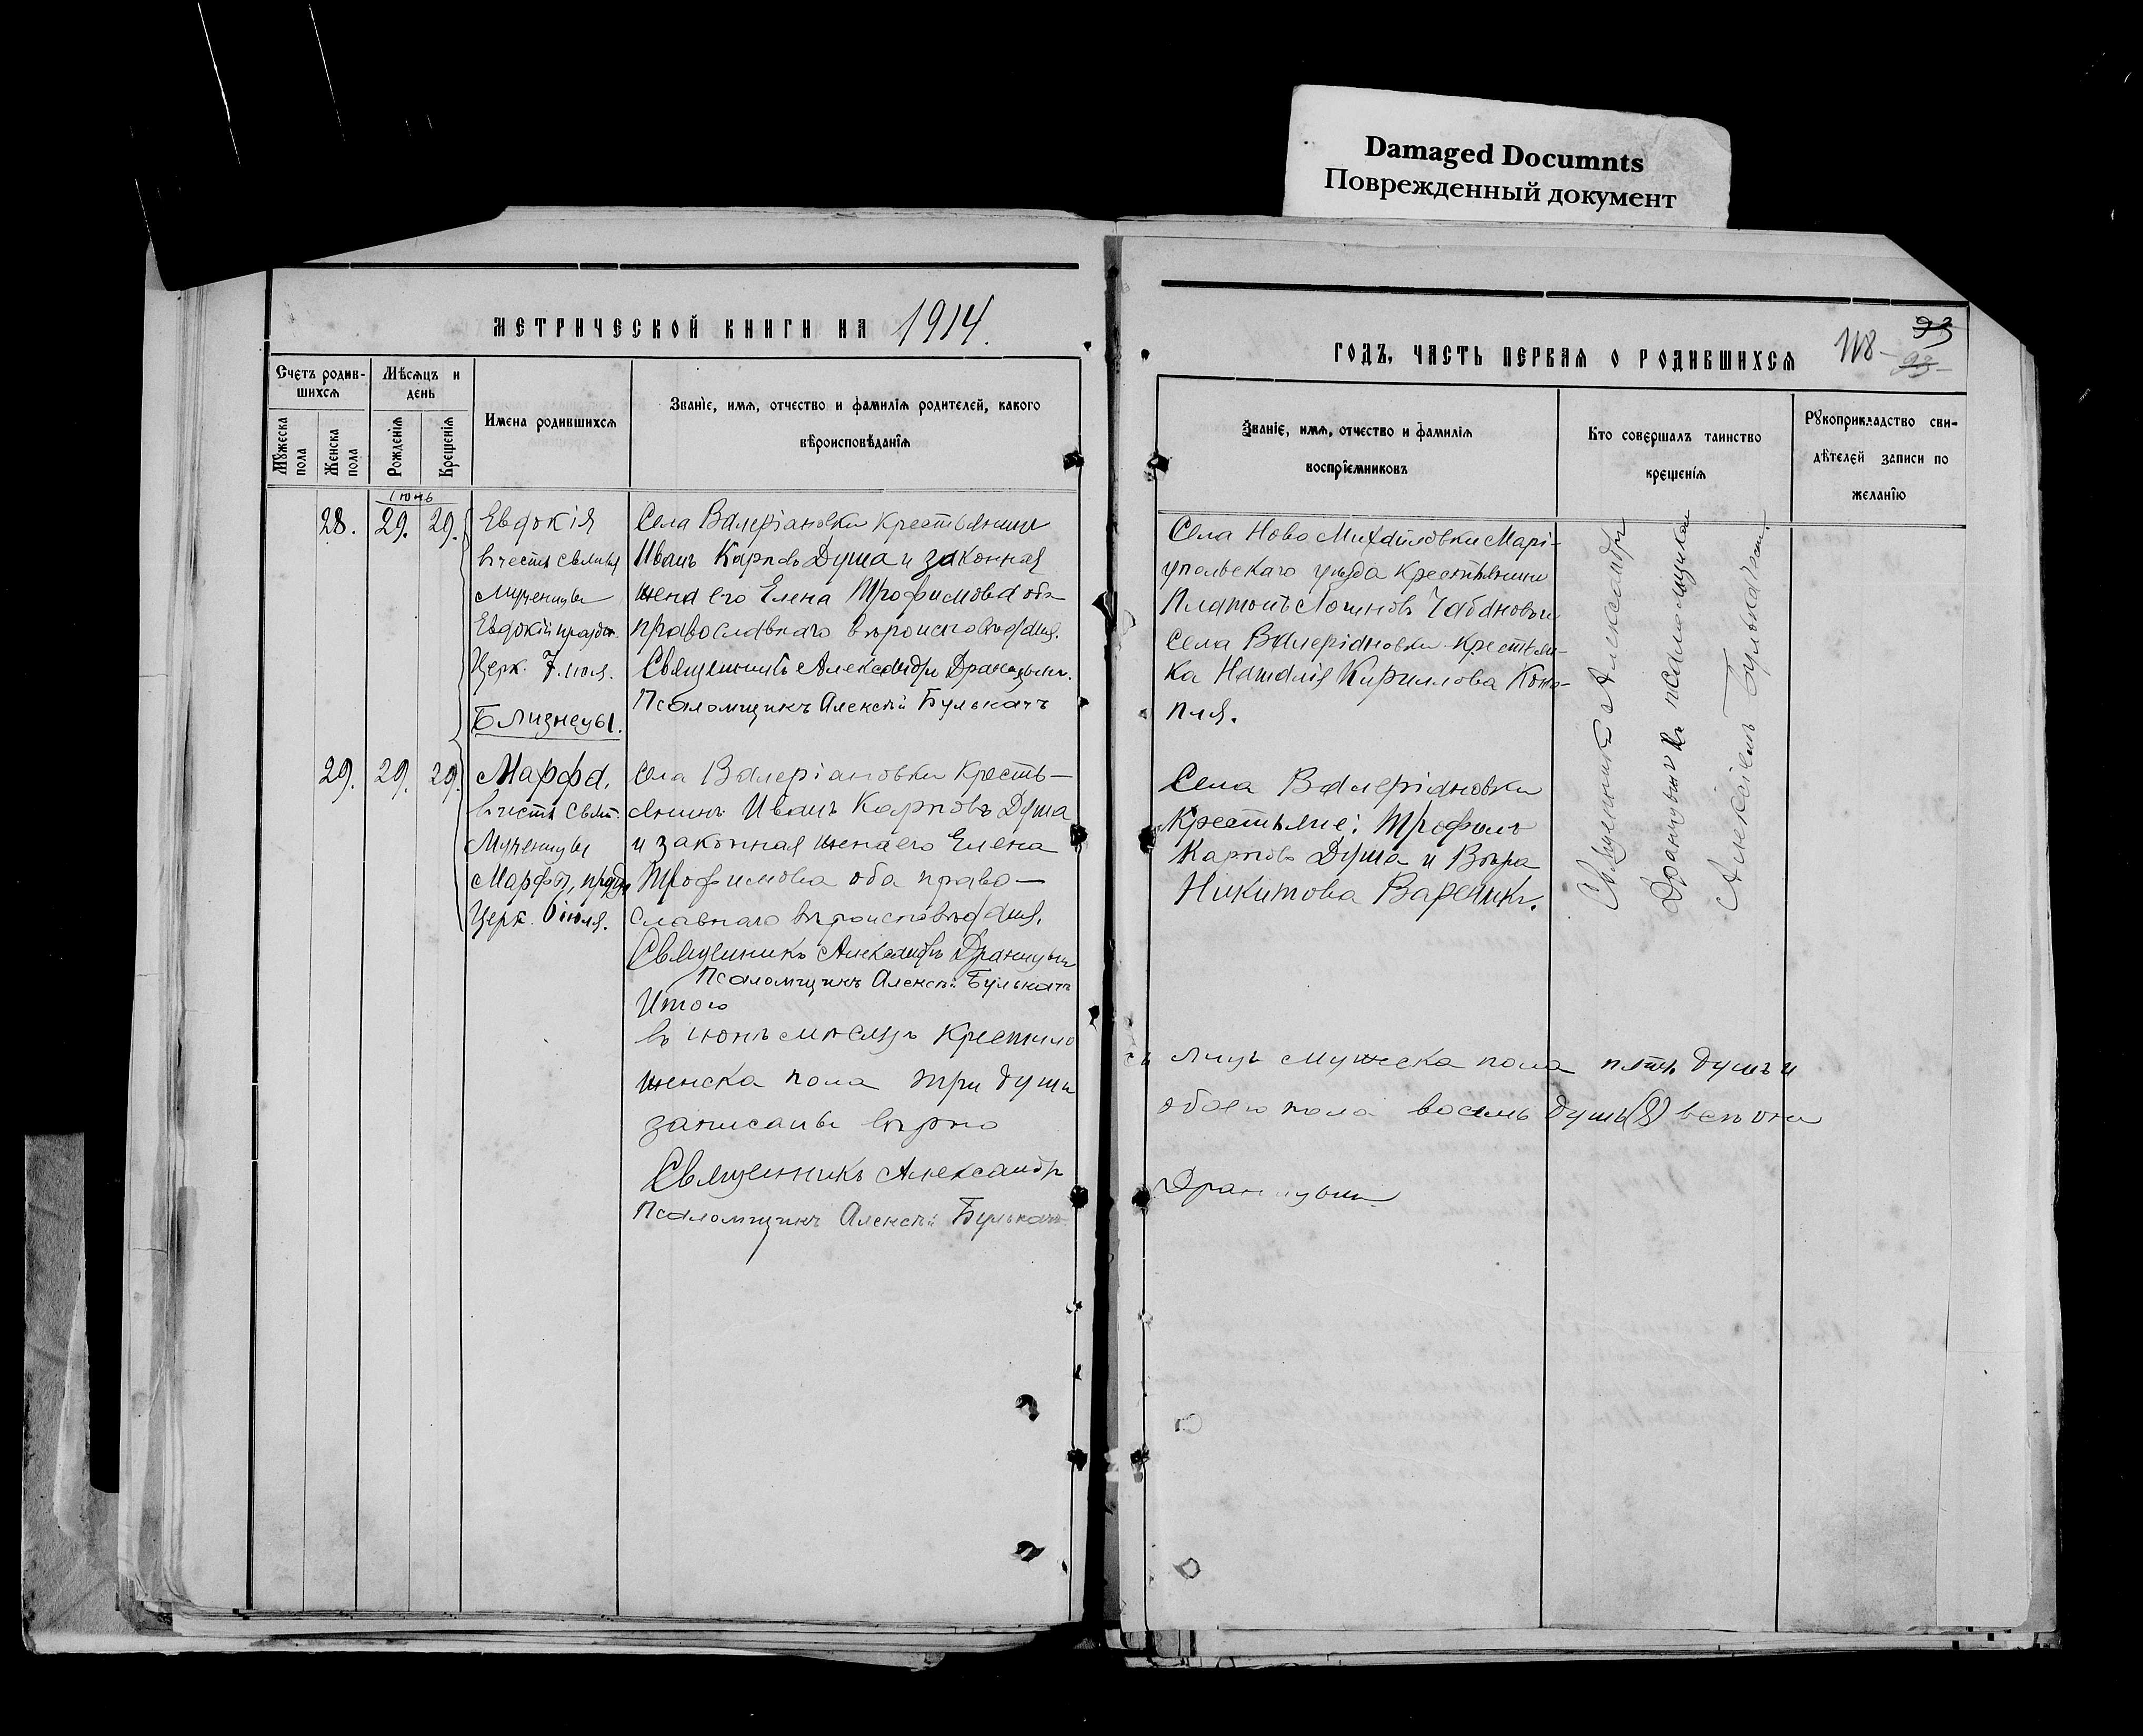 Damaged Documnts
Поврежденный документ
МЕТРИЧЕСКОЙ КНИГИ НА 1914.
Счетъ родив-
шихся
Мѣсяцъ и
день
Мужеска
пола
Женска
пола
Рожденія
Крещенія
Имена родившихся
Званіе, имя, отчество и фамилія родителей, какого
вѣроисповѣданія
Іюнь
28. 29. 29.
Евдокія
въ честь святыя
мученицы
Евдокій праздн.
Церк. 7. іюля.
Близнецы.
Села Валеріановки крестьянинъ
Иванъ Карповъ Душа и законная
жена его Елена Трофимова оба
православнаго вѣроисповѣданія.
Священникъ Александръ
Псаломщикъ Алексѣй Булькачъ
29. 29. 29.
Марфа,
въ честь свят.
Мученицы
Марфы, празд.
Церк. 6 іюля.
села Валеріановки кресть-
янинъ Иванъ Карповъ Душа
и законная жена его Елена
Трофимова оба право-
славнаго вѣроисповѣданія.
Священникъ Александръ
Псаломщикъ Алексѣй Булькачъ
Итого
въ іюнѣ мѣсяцѣ крещено
женска пола три души
записаны вѣрно
Священникъ Александръ
Псаломщикъ Алексѣй Булькачъ
ГОДЪ, ЧАСТЬ ПЕРВАЯ О РОДИВШИХСЯ
118
93
93
Званіе, имя, отчество и фамилія
воспріемниковъ
Кто совершалъ таинство
крещенія
Рукоприкладство сви-
дѣтелей записи по
желанію
Села Ново Михайловки Марі-
упольскаго уѣзда крестьянинъ
Платонъ Логиновъ Чабановъ и
села Валеріановки крестьян-
ка Наталія Кириллова Коно-
пля.
Села Валеріановки
Крестьяне: Трофимъ
Карповъ Душа и Вѣра
Никитова Вареникъ.
Священникъ Александръ
съ псаломщикомъ
Алексіемъ Булькачемъ.
лицъ мужеска пола пять душъ и
обоего пола восемь душъ (8) всѣ они